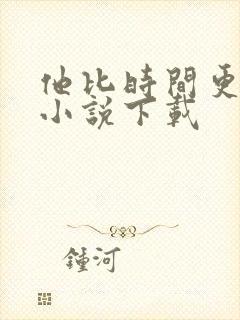 他比時間更
小說下載
鍾河